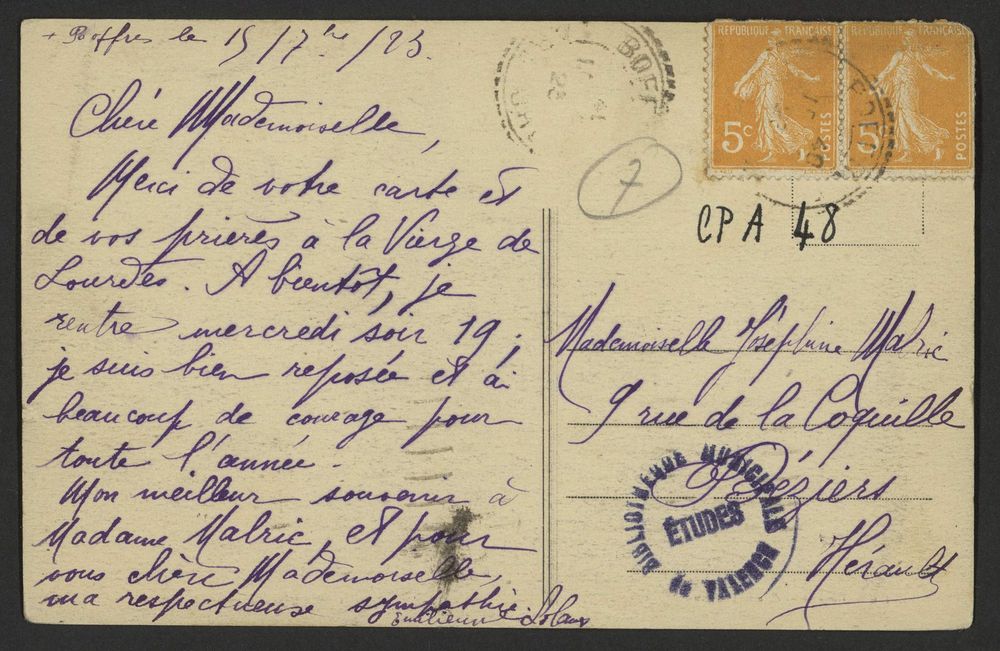 + Boffres le 15/7bre/23
Chère Mademoiselle,
Merci de votre carte et
de vos prières à la Vierge de
Lourdes. A bientôt, je
rentre mercredi soir 19;
je suis bien reposée et ai
beaucoup de courage pour
toute l'année.
Mon meilleur souvenir à
Madame Malric, et pour
vous chère Mademoiselle,
ma respectueuse sympathie.
BOFF
7
RÉPUBLIQUE FRANÇAISE
5c
POSTES
RÉPUBLIQUE FRANÇAISE
5
POSTES
CPA 48
Mademoiselle Joséphine Malric
9 rue de la Coquille
Béziers
Hérault
BIBLIOTHEQUE MUNICIPALE
ÉTUDES
de VALENCE